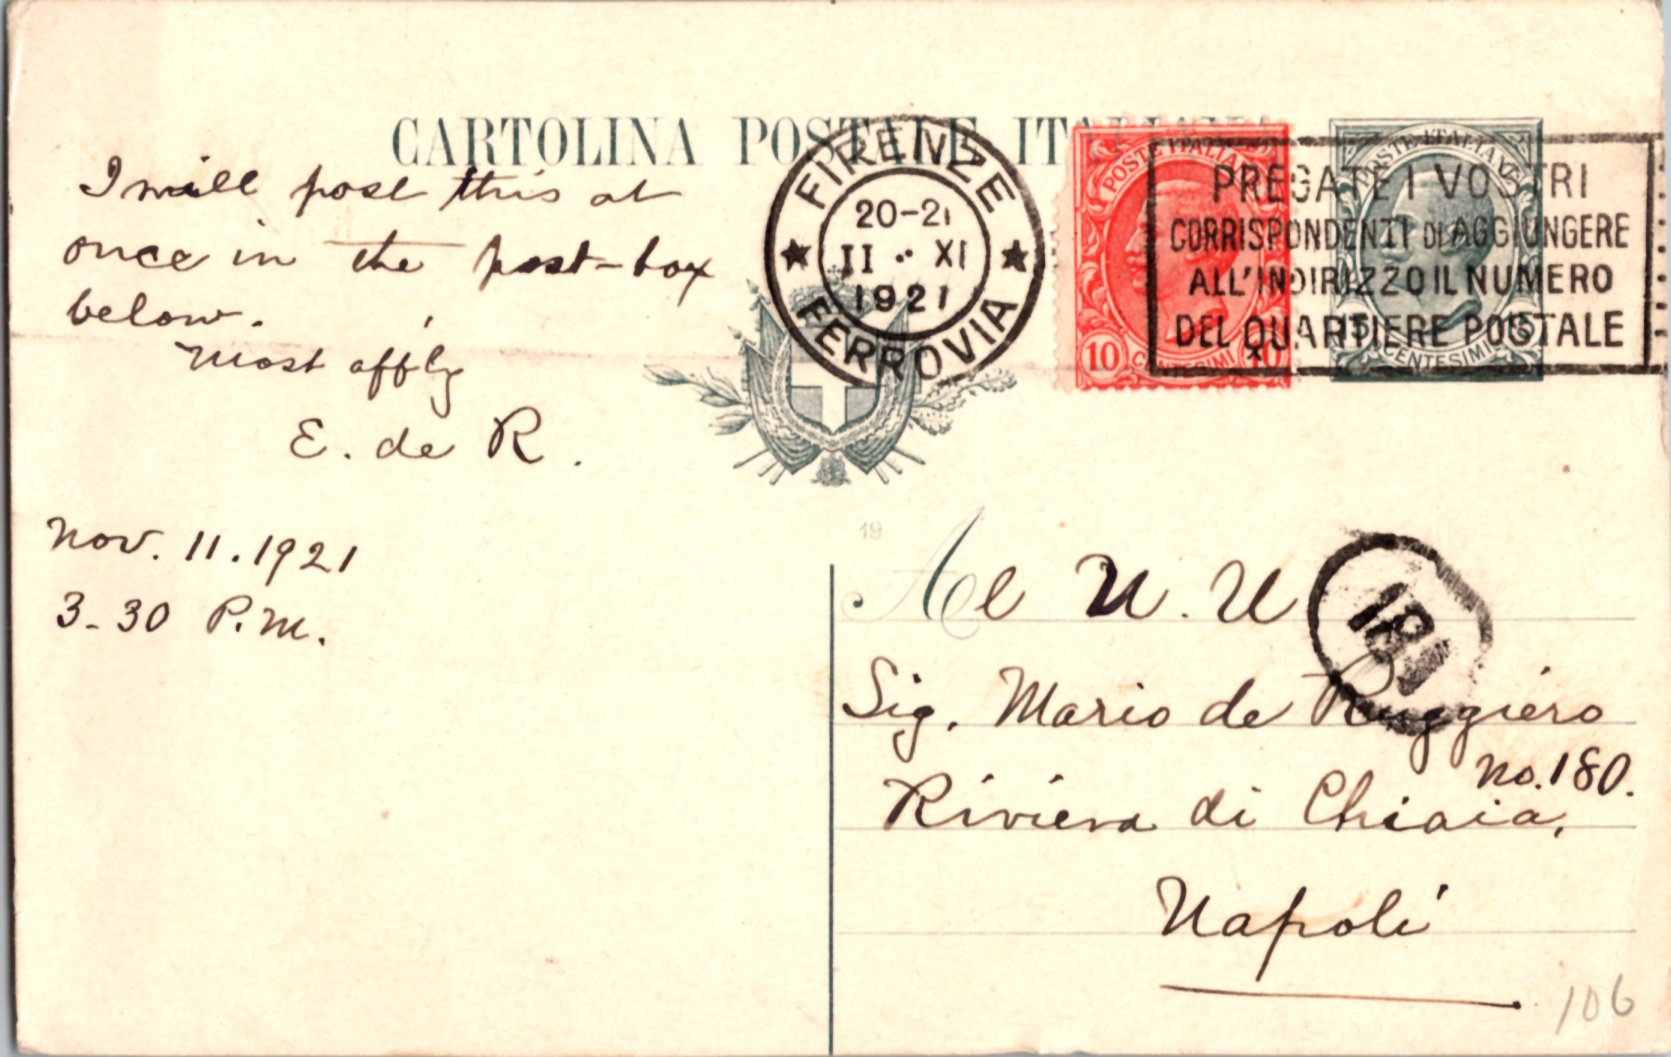 CARTOLINA POSTALE ITALIANA
I will post this at
once in the post-box
below.
Most affly
E. de R.
Nov. 11. 1921
3-30 P.M.
FIRENZE
20-21
11 XI
1921
FERROVIA
POSTE ITALIANE
10 CENTESIMI 10
POSTE ITALIANE
15 CENTESIMI 15
PREGATE I VOSTRI
CORRISPONDENTI DI AGGIUNGERE
ALL'INDIRIZZO IL NUMERO
DEL QUARTIERE POSTALE
19
Al N. U
181
Sig. Mario de Ruggiero
No. 180.
Riviera di Chiaia,
Napoli
106